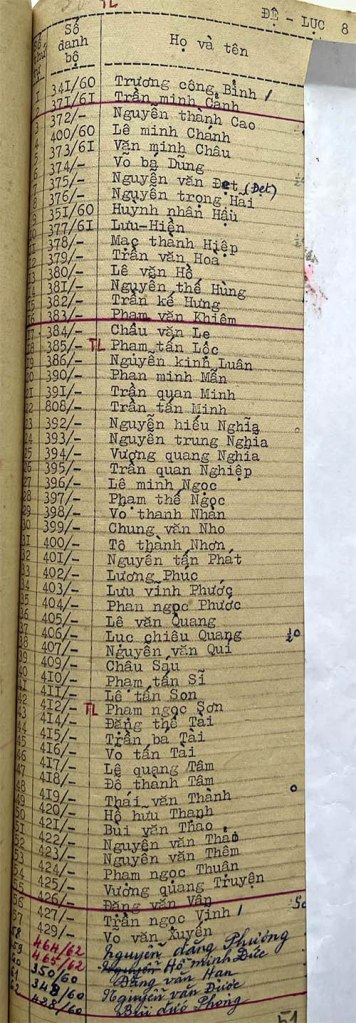 TL
ĐỆ - LỤC 8
Số danh bộ
Họ và tên
341/60 Trương công Bình /
371/61 Trần minh Cảnh
372/- Nguyễn thành Cao
400/60 Lê minh Chánh
373/61 Văn minh Châu
374/- Võ bá Dũng
375/- Nguyễn văn Đẹt (Đẹt)
376/- Nguyễn trọng Hải
351/60 Huỳnh nhân Hậu
377/61 Lưu-Hiền
378/- Mạc thành Hiệp
379/- Trần văn Hoà
380/- Lê văn Hồ
381/- Nguyễn thế Hùng
382/- Trần kế Hưng
383/- Phạm văn Khiêm
384/- Châu văn Le
385/- TL Phạm tấn Lộc
386/- Nguyễn kinh Luân
390/- Phan minh Mẫn
391/- Trần quan Minh
808/- Trần tấn Minh
392/- Nguyễn hiếu Nghĩa
393/- Nguyễn trung Nghĩa
394/- Vương quang Nghĩa
395/- Trần quan Nghiệp
396/- Lê minh Ngọc
397/- Phạm thế Ngọc
398/- Võ thanh Nhàn
399/- Chung văn Nho
400/- Tô thành Nhơn
401/- Nguyễn tấn Phát
402/- Lương Phúc
403/- Lưu vĩnh Phước
404/- Phan ngọc Phước
405/- Lê văn Quang
406/- Lục chiêu Quang
407/- Nguyễn văn Quí
409/- Châu Sáu
410/- Phạm tấn Sĩ
411/- Lê tấn Sơn
412/- TL Phạm ngọc Sơn
414/- Đặng thế Tài
415/- Trần bá Tài
416/- Võ tấn Tài
417/- Lê quang Tâm
418/- Đỗ thanh Tâm
419/- Thái văn Thành
420/- Hồ hưu Thạnh
421/- Bùi văn Thao
422/- Nguyễn văn Thảo
423/- Nguyễn văn Thêm
424/- Phạm ngọc Thuận
425/- Vương quang Truyện
426/- Đặng văn Vân
427/- Trần ngọc Vinh /
429/- Võ văn Xuyên
58 464/62 Nguyễn đăng Phương
59 465/62 Hồ minh Đức
60 350/60 Đặng văn Han
61 348/60 Nguyễn văn Được
62 428/60 Bùi đức Phong
51